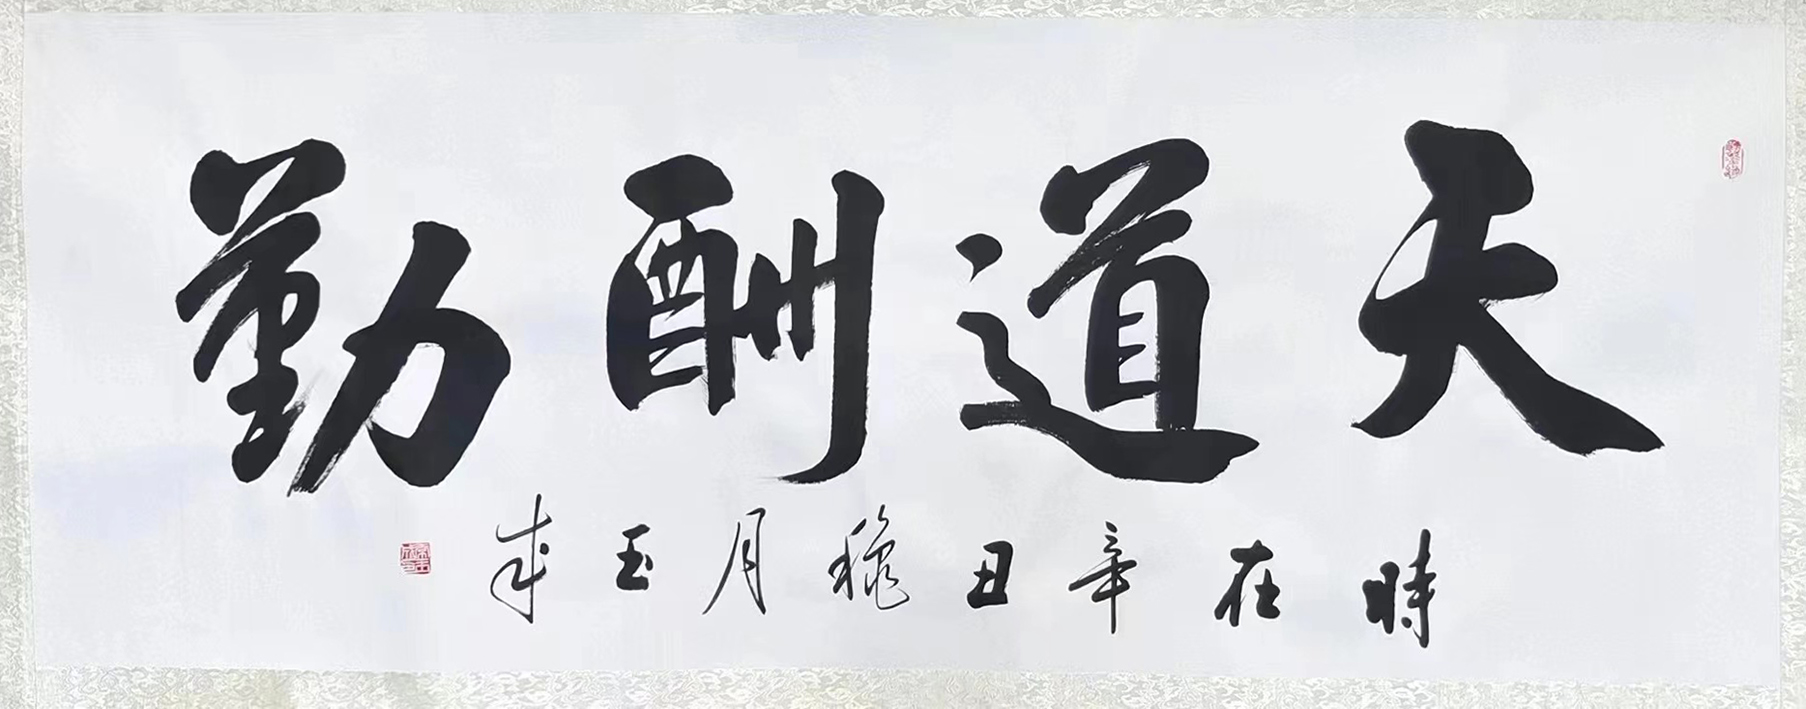 天道酬勤
時在辛丑穐月玉成